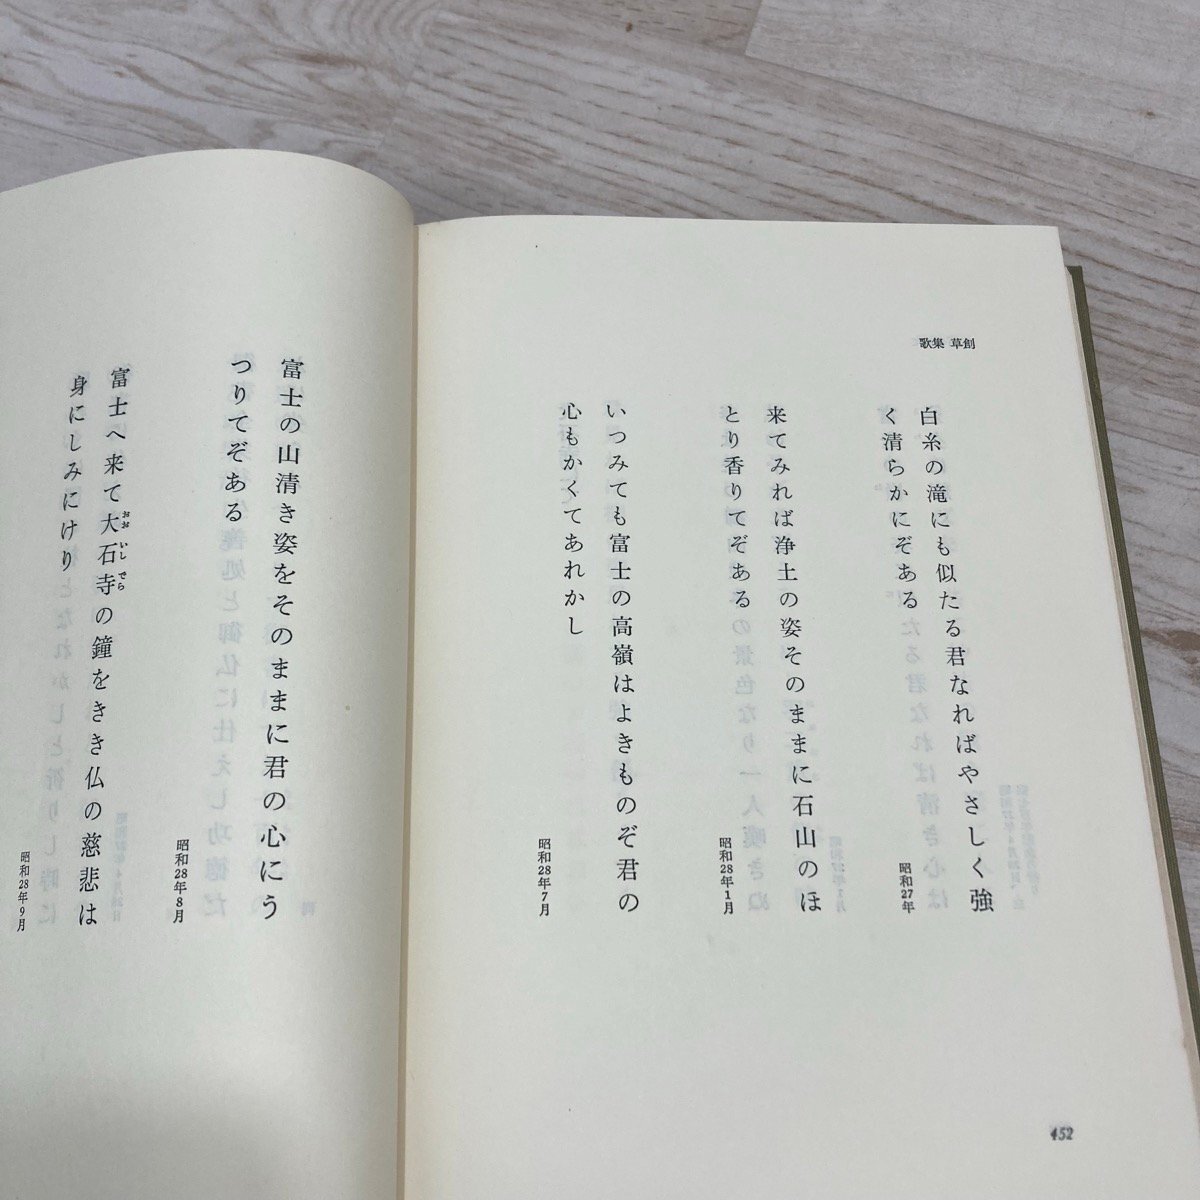 歌集 草創
白糸の滝にも似たる君なればやさしく強
く清らかにぞある
昭和27年
来てみれば浄土の姿そのままに石山のほ
とり香りてぞある
昭和28年1月
いつみても富士の高嶺はよきものぞ君の
心もかくてあれかし
昭和28年7月
452
富士の山清き姿をそのままに君の心にう
つりてぞある
昭和28年8月
富士へ来て大石寺の鐘をきき仏の慈悲は
おおいしでら
身にしみにけり
昭和28年9月